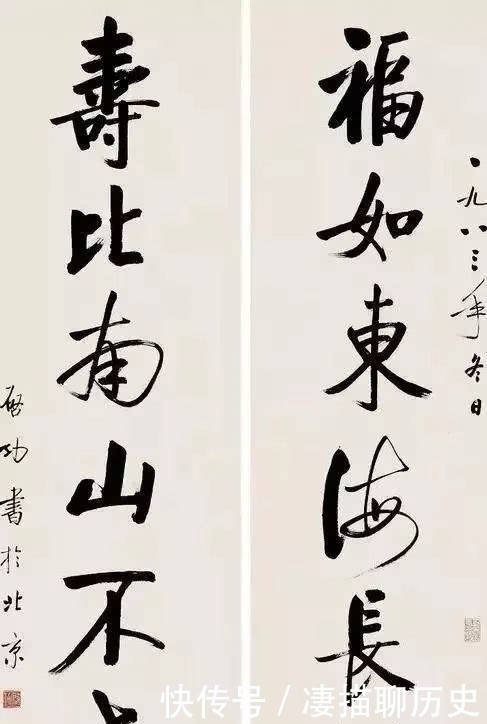 一九八三年冬日
福如東海長
壽比南山不
启功書於北京
快传号 / 凄描聊历史